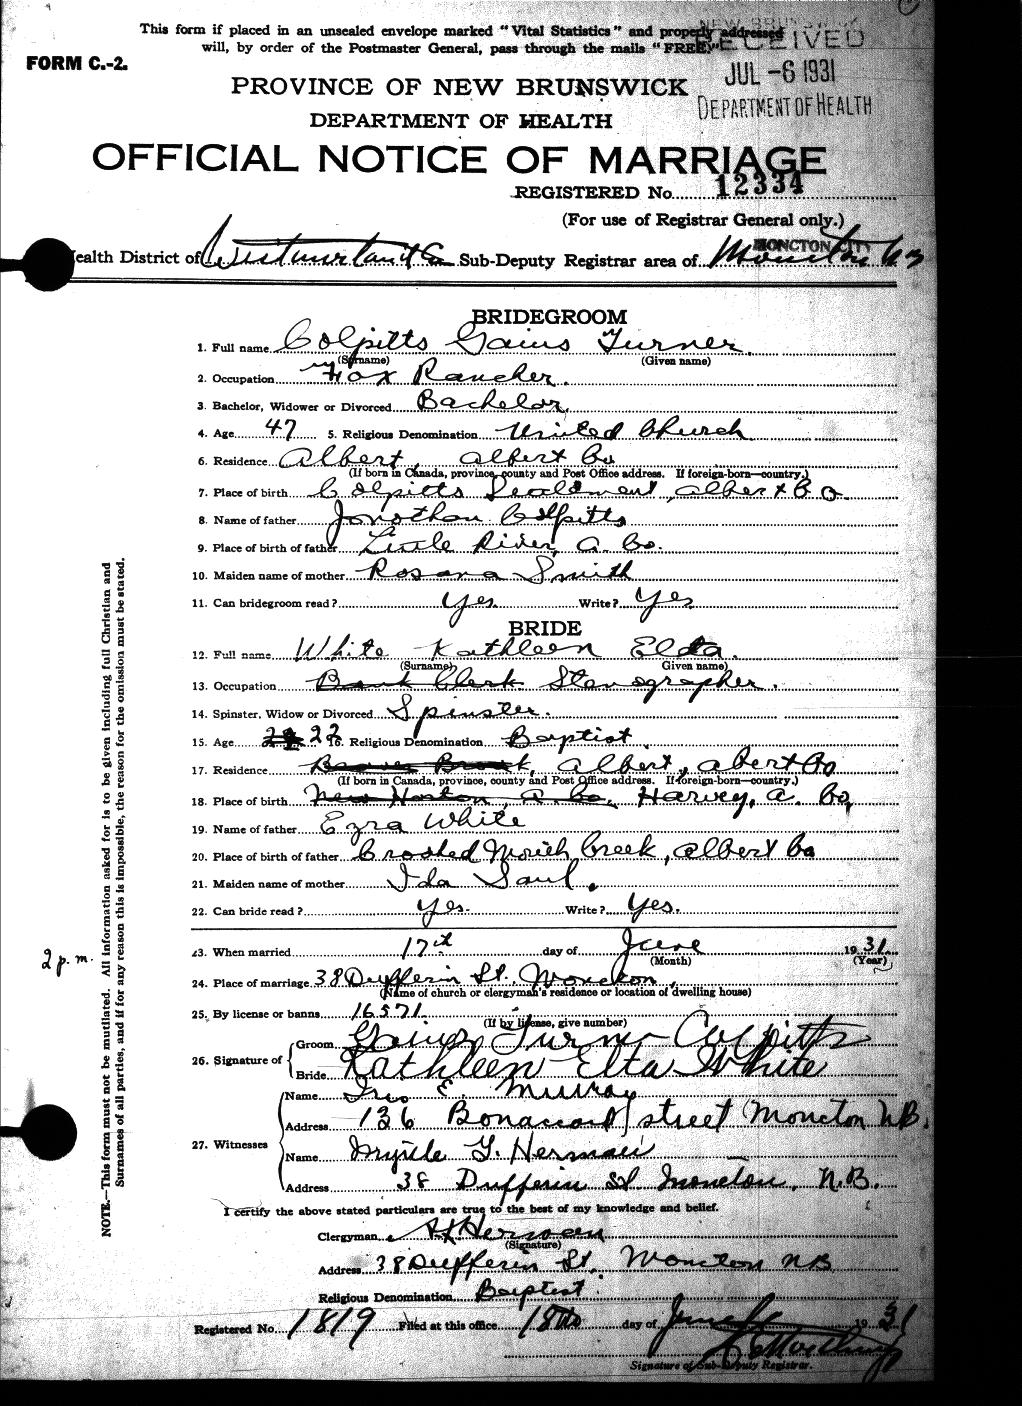 This form if placed in an unsealed envelope marked "Vital Statistics" and properly addressed
will, by order of the Postmaster General, pass through the mails "FREE"
NEW BRUNSWICK
RECEIVED
JUL -6 1931
DEPARTMENT OF HEALTH
FORM C.-2.
PROVINCE OF NEW BRUNSWICK
DEPARTMENT OF HEALTH
OFFICIAL NOTICE OF MARRIAGE
REGISTERED No. 12334
(For use of Registrar General only.)
MONCTON CITY
Health District of Westmorland Co Sub-Deputy Registrar area of Moncton N.B
BRIDEGROOM
1. Full name Colpitts Gaius Turner.
(Surname) (Given name)
2. Occupation Fox Rancher.
3. Bachelor, Widower or Divorced Bachelor
4. Age 47 5. Religious Denomination United Church
6. Residence Albert, Albert Co
(If born in Canada, province, county and Post Office address. If foreign-born—country.)
7. Place of birth Colpitts Settlement, Albert Co.
8. Name of father Jonathan Colpitts
9. Place of birth of father Little River, A. Co.
10. Maiden name of mother Rosana Smith
11. Can bridegroom read? Yes. Write? Yes
BRIDE
12. Full name White Kathleen Elda.
(Surname) Given name)
13. Occupation Bank Clerk Stenographer.
14. Spinster, Widow or Divorced Spinster.
15. Age 22 16. Religious Denomination Baptist.
17. Residence Beaver Brook, Albert, Abert Co
(If born in Canada, province, county and Post Office address. If foreign-born—country.)
18. Place of birth New Horton, A. Co. Harvey, A. Co,
19. Name of father Ezra White
20. Place of birth of father Crooked Creek, Albert Co
21. Maiden name of mother Ida Saul.
22. Can bride read? Yes. Write? Yes.
23. When married 17th day of June 1931
(Month) (Year)
2 p.m.
24. Place of marriage 38 Dufferin St. Moncton,
(Name of church or clergyman's residence or location of dwelling house)
25. By license or banns 16571
(If by license, give number)
26. Signature of Groom Gaius Turner Colpitts
Bride Kathleen Elta White
27. Witnesses Name E. Murray
Address 136 Bonaccord street Moncton N.B.
Name Myrtle G. Herman
Address 38 Dufferin St Moncton, N.B.
I certify the above stated particulars are true to the best of my knowledge and belief.
Clergyman Herman
(Signature)
Address 38 Dufferin St. Moncton NB
Religious Denomination Baptist.
Registered No. 1819 Filed at this office 18th day of June 1931
Signature of Sub-Deputy Registrar.
NOTE.—This form must not be mutilated. All information asked for is to be given including full Christian and
Surnames of all parties, and if for any reason this is impossible, the reason for the omission must be stated.